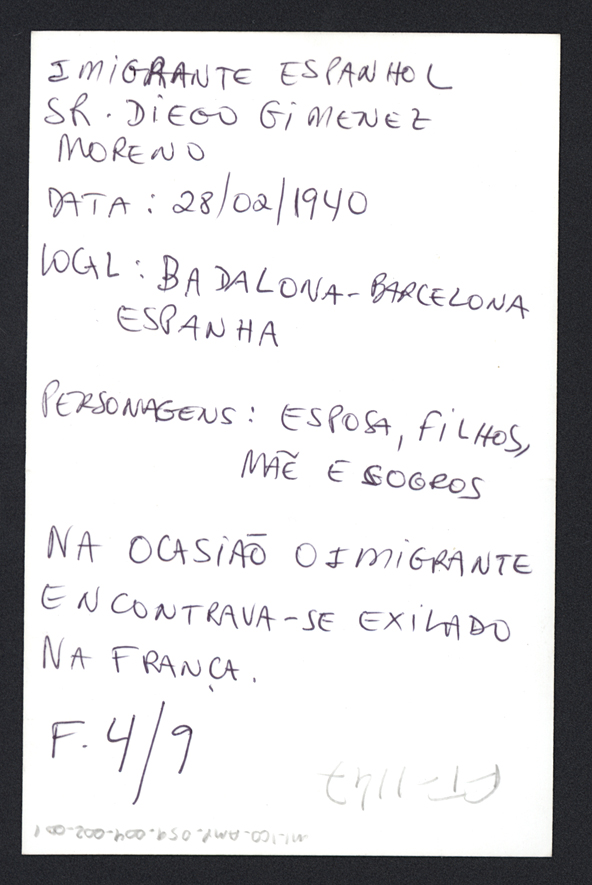 IMIGRANTE ESPANHOL
SR. DIEGO GIMENEZ
MORENO
DATA: 28/02/1940
LOCAL: BADALONA-BARCELONA
ESPANHA
PERSONAGENS: ESPOSA, FILHOS,
MÃE E SOGROS
NA OCASIÃO O IMIGRANTE
ENCONTRAVA-SE EXILADO
NA FRANÇA.
F. 4/9
FT-1147
MI-ICO-AMP-059-004-002-001